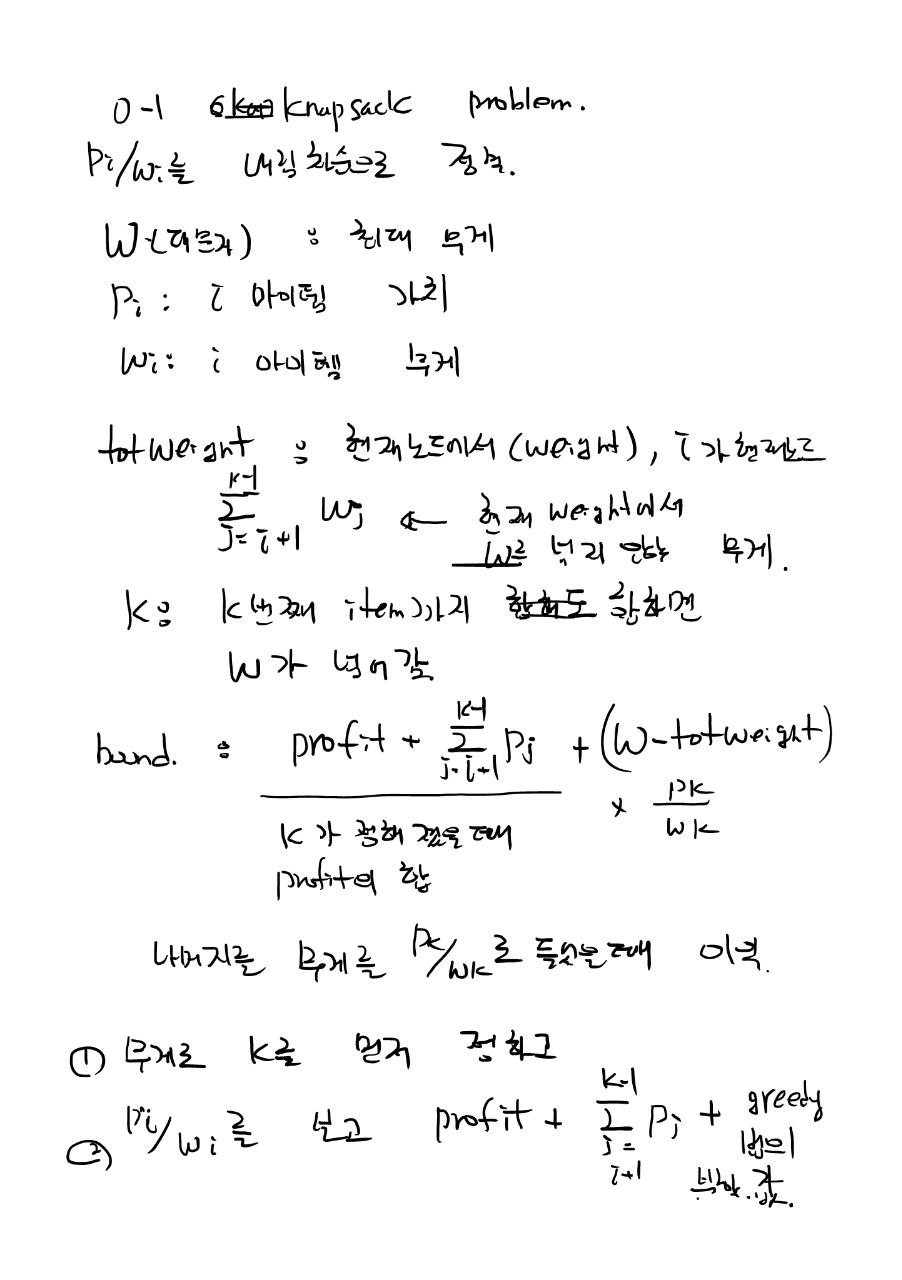 0-1 knapsack problem.
Pi/wi를 내림차순으로 정렬.
W(대문자) : 최대 무게
Pi : i 아이템 가치
wi : i 아이템 무게
totweight : 현재노드에서 (weight), i가 현재노드
∑_{j=i+1}^{k-1} wj ← 현재 weight에서
W를 넘지 않는 무게.
k : k번째 item까지 합하면
W가 넘어감
bound. : profit + ∑_{j=i+1}^{k-1} Pj + (W-totweight)
× PK/WK
k가 정해 졌을때
profit의 합
나머지를 무게를 PK/WK로 들었을때 이익.
① 무게로 K를 먼저 정하고
② Pi/wi를 보고 profit + ∑_{j=i+1}^{k-1} Pj + greedy
법의